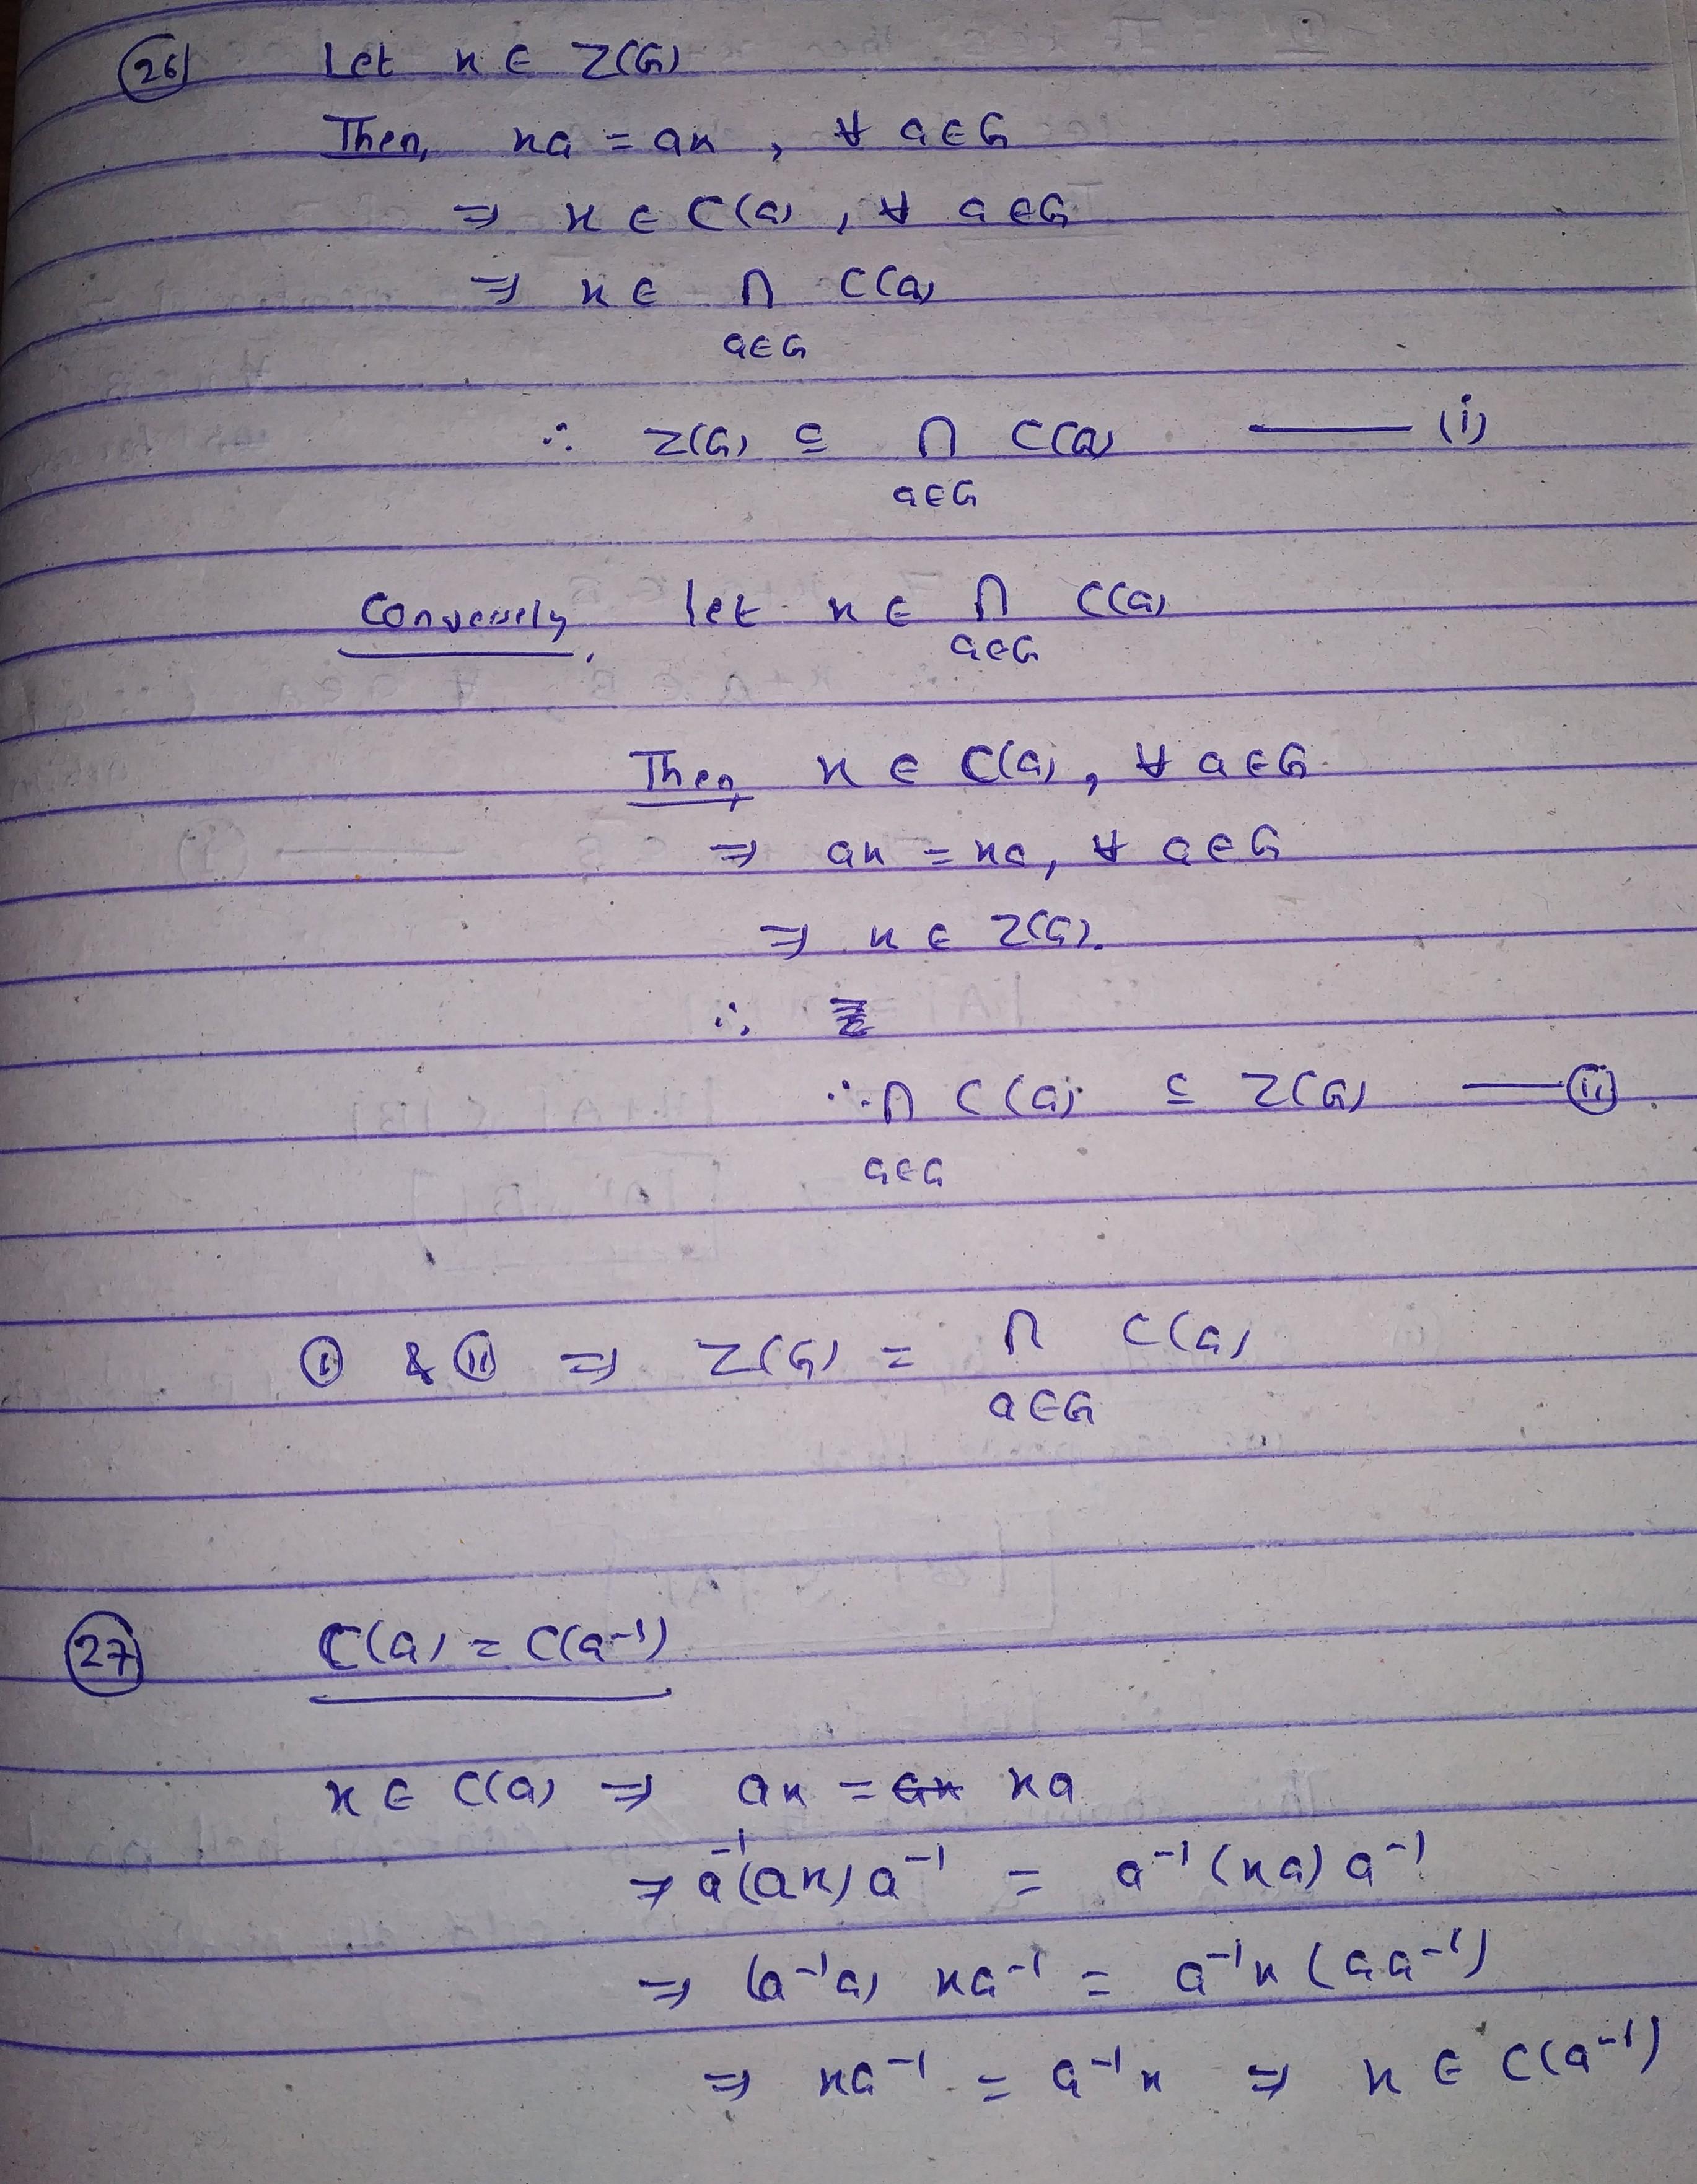 26 Let x ∈ Z(G)
Then, xa = ax , ∀ a∈G
⇒ x ∈ C(a) , ∀ a∈G
⇒ x ∈ ∩ C(a)
a∈G
∴ Z(G) ⊆ ∩ C(a) —— (i)
a∈G
Conversely, let x ∈ ∩ C(a)
a∈G
Then, x ∈ C(a) , ∀ a∈G
⇒ ax = xa, ∀ a∈G
⇒ x ∈ Z(G).
∴
∴ ∩ C(a) ⊆ Z(G) —— (ii)
a∈G
(i) & (ii) ⇒ Z(G) = ∩ C(a)
a∈G
27 C(a) = C(a⁻¹)
x ∈ C(a) ⇒ ax = xa
⇒ a⁻¹(ax)a⁻¹ = a⁻¹(xa)a⁻¹
⇒ (a⁻¹a) xa⁻¹ = a⁻¹x(aa⁻¹)
⇒ xa⁻¹ = a⁻¹x ⇒ x ∈ C(a⁻¹)